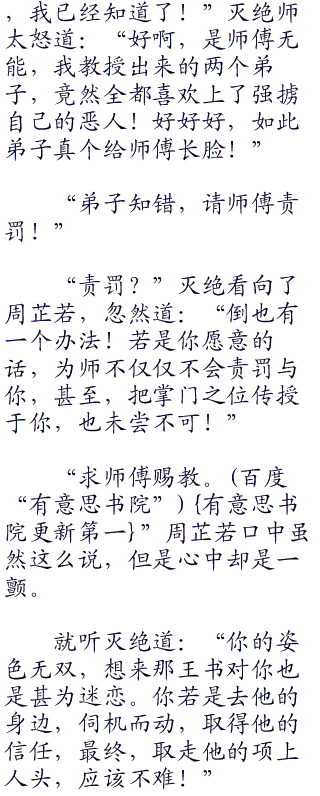 ，我已经知道了！”灭绝师
太怒道：“好啊，是师傅无
能，我教授出来的两个弟
子，竟然全都喜欢上了强掳
自己的恶人！好好好，如此
弟子真个给师傅长脸！”
“弟子知错，请师傅责
罚！”
“责罚？”灭绝看向了
周芷若，忽然道：“倒也有
一个办法！若是你愿意的
话，为师不仅仅不会责罚与
你，甚至，把掌门之位传授
于你，也未尝不可！”
“求师傅赐教。(百度
“有意思书院”) {有意思书
院更新第一}”周芷若口中虽
然这么说，但是心中却是一
颤。
就听灭绝道：“你的姿
色无双，想来那王书对你也
是甚为迷恋。你若是去他的
身边，伺机而动，取得他的
信任，最终，取走他的项上
人头，应该不难！”